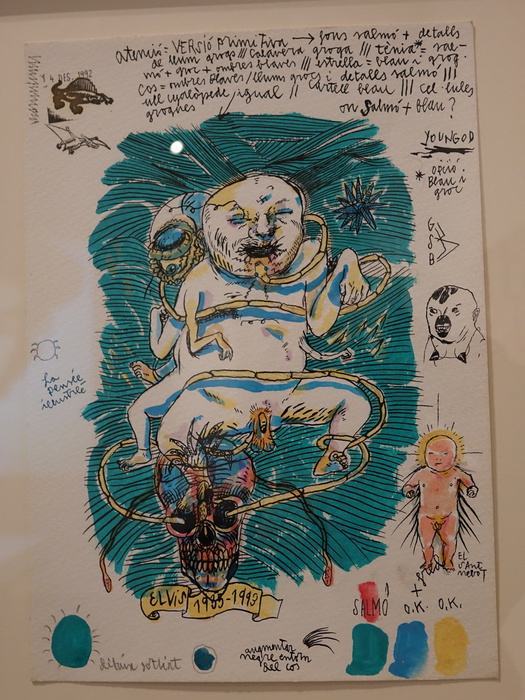 atenció: VERSIÓ PRIMITIVA → fons salmó + detalls
de llum grogs /// calavera groga /// tènia* = sal-
mó + groc + ombres blaves /// estrella = blau i grog.
Cos = ombres blaves / llum groc i detalls salmó ///
ull cyclòpede, igual // cartell blau /// cel·lules
grogues on Salmó + blau?
14 DES. 1992
YOUNGOD
* opció:
Blau i
groc
G
S
B
La
pensée
illustré
EL
SAnt
nebot
ELVIS 1935-1993
SALMÓ O.K. O.K.
dibuix sotlint
augmentar
negre entorn
del cos